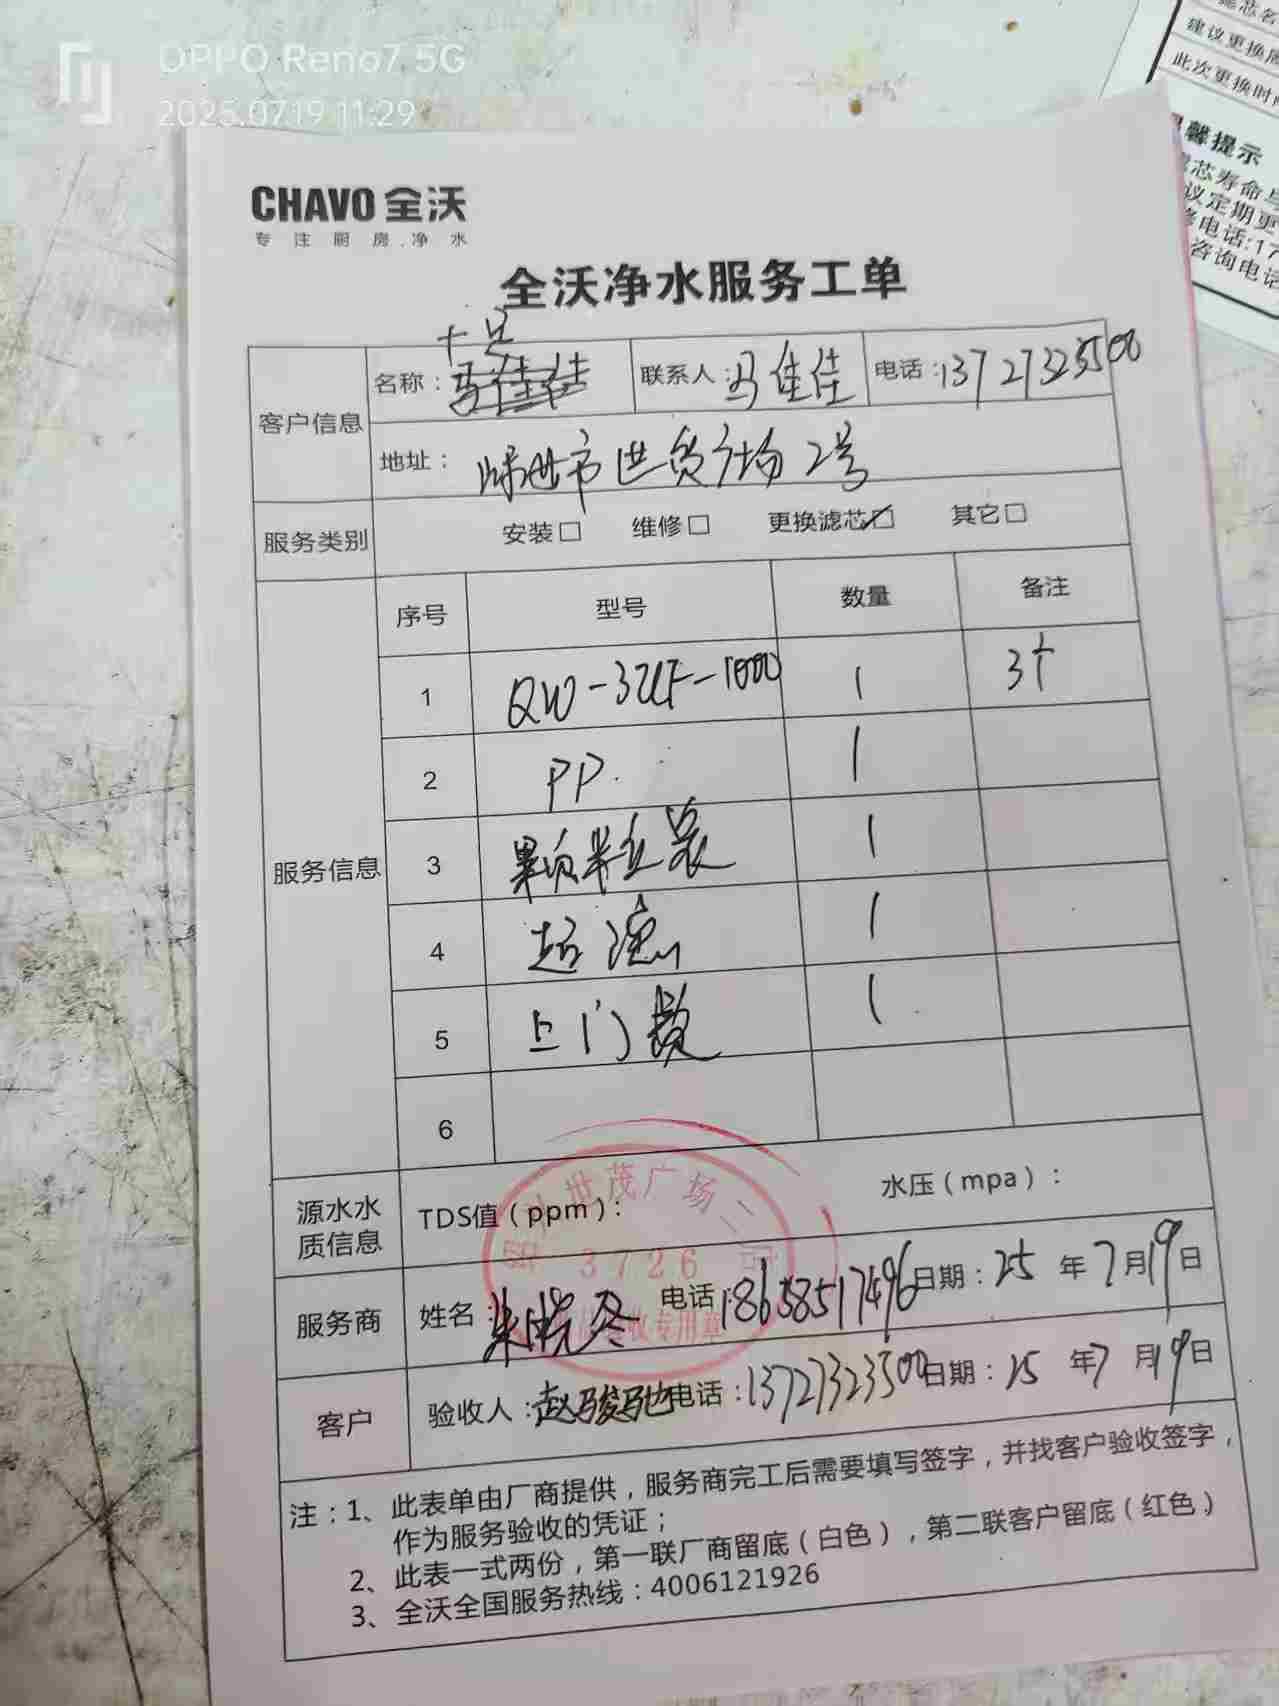 OPPO Reno7 5G
2025.07.19 11:29
建议更换周
此次更换时
馨提示
芯寿命与
议定期更
电话:17
咨询电话
CHAVO 全沃
专注厨房.净水
全沃净水服务工单
客户信息 名称: 联系人:马佳佳 电话:13727323500
地址: 世贸广场2号
服务类别 安装□ 维修□ 更换滤芯☑ 其它□
服务信息 序号 型号 数量 备注
1 QW-3UF-1000 1 3个
2 PP. 1
3 颗粒炭 1
4 超滤 1
5 上门费 1
6
源水水质信息 TDS值(ppm): 水压(mpa):
世茂广场二
3726
收专用章
服务商 姓名:朱晓冬 电话:18658517496 日期:25年7月19日
客户 验收人:赵骏驰 电话:13727323500 日期:25年7月19日
注:1、此表单由厂商提供,服务商完工后需要填写签字,并找客户验收签字,
作为服务验收的凭证;
2、此表一式两份,第一联厂商留底(白色),第二联客户留底(红色)
3、全沃全国服务热线:4006121926